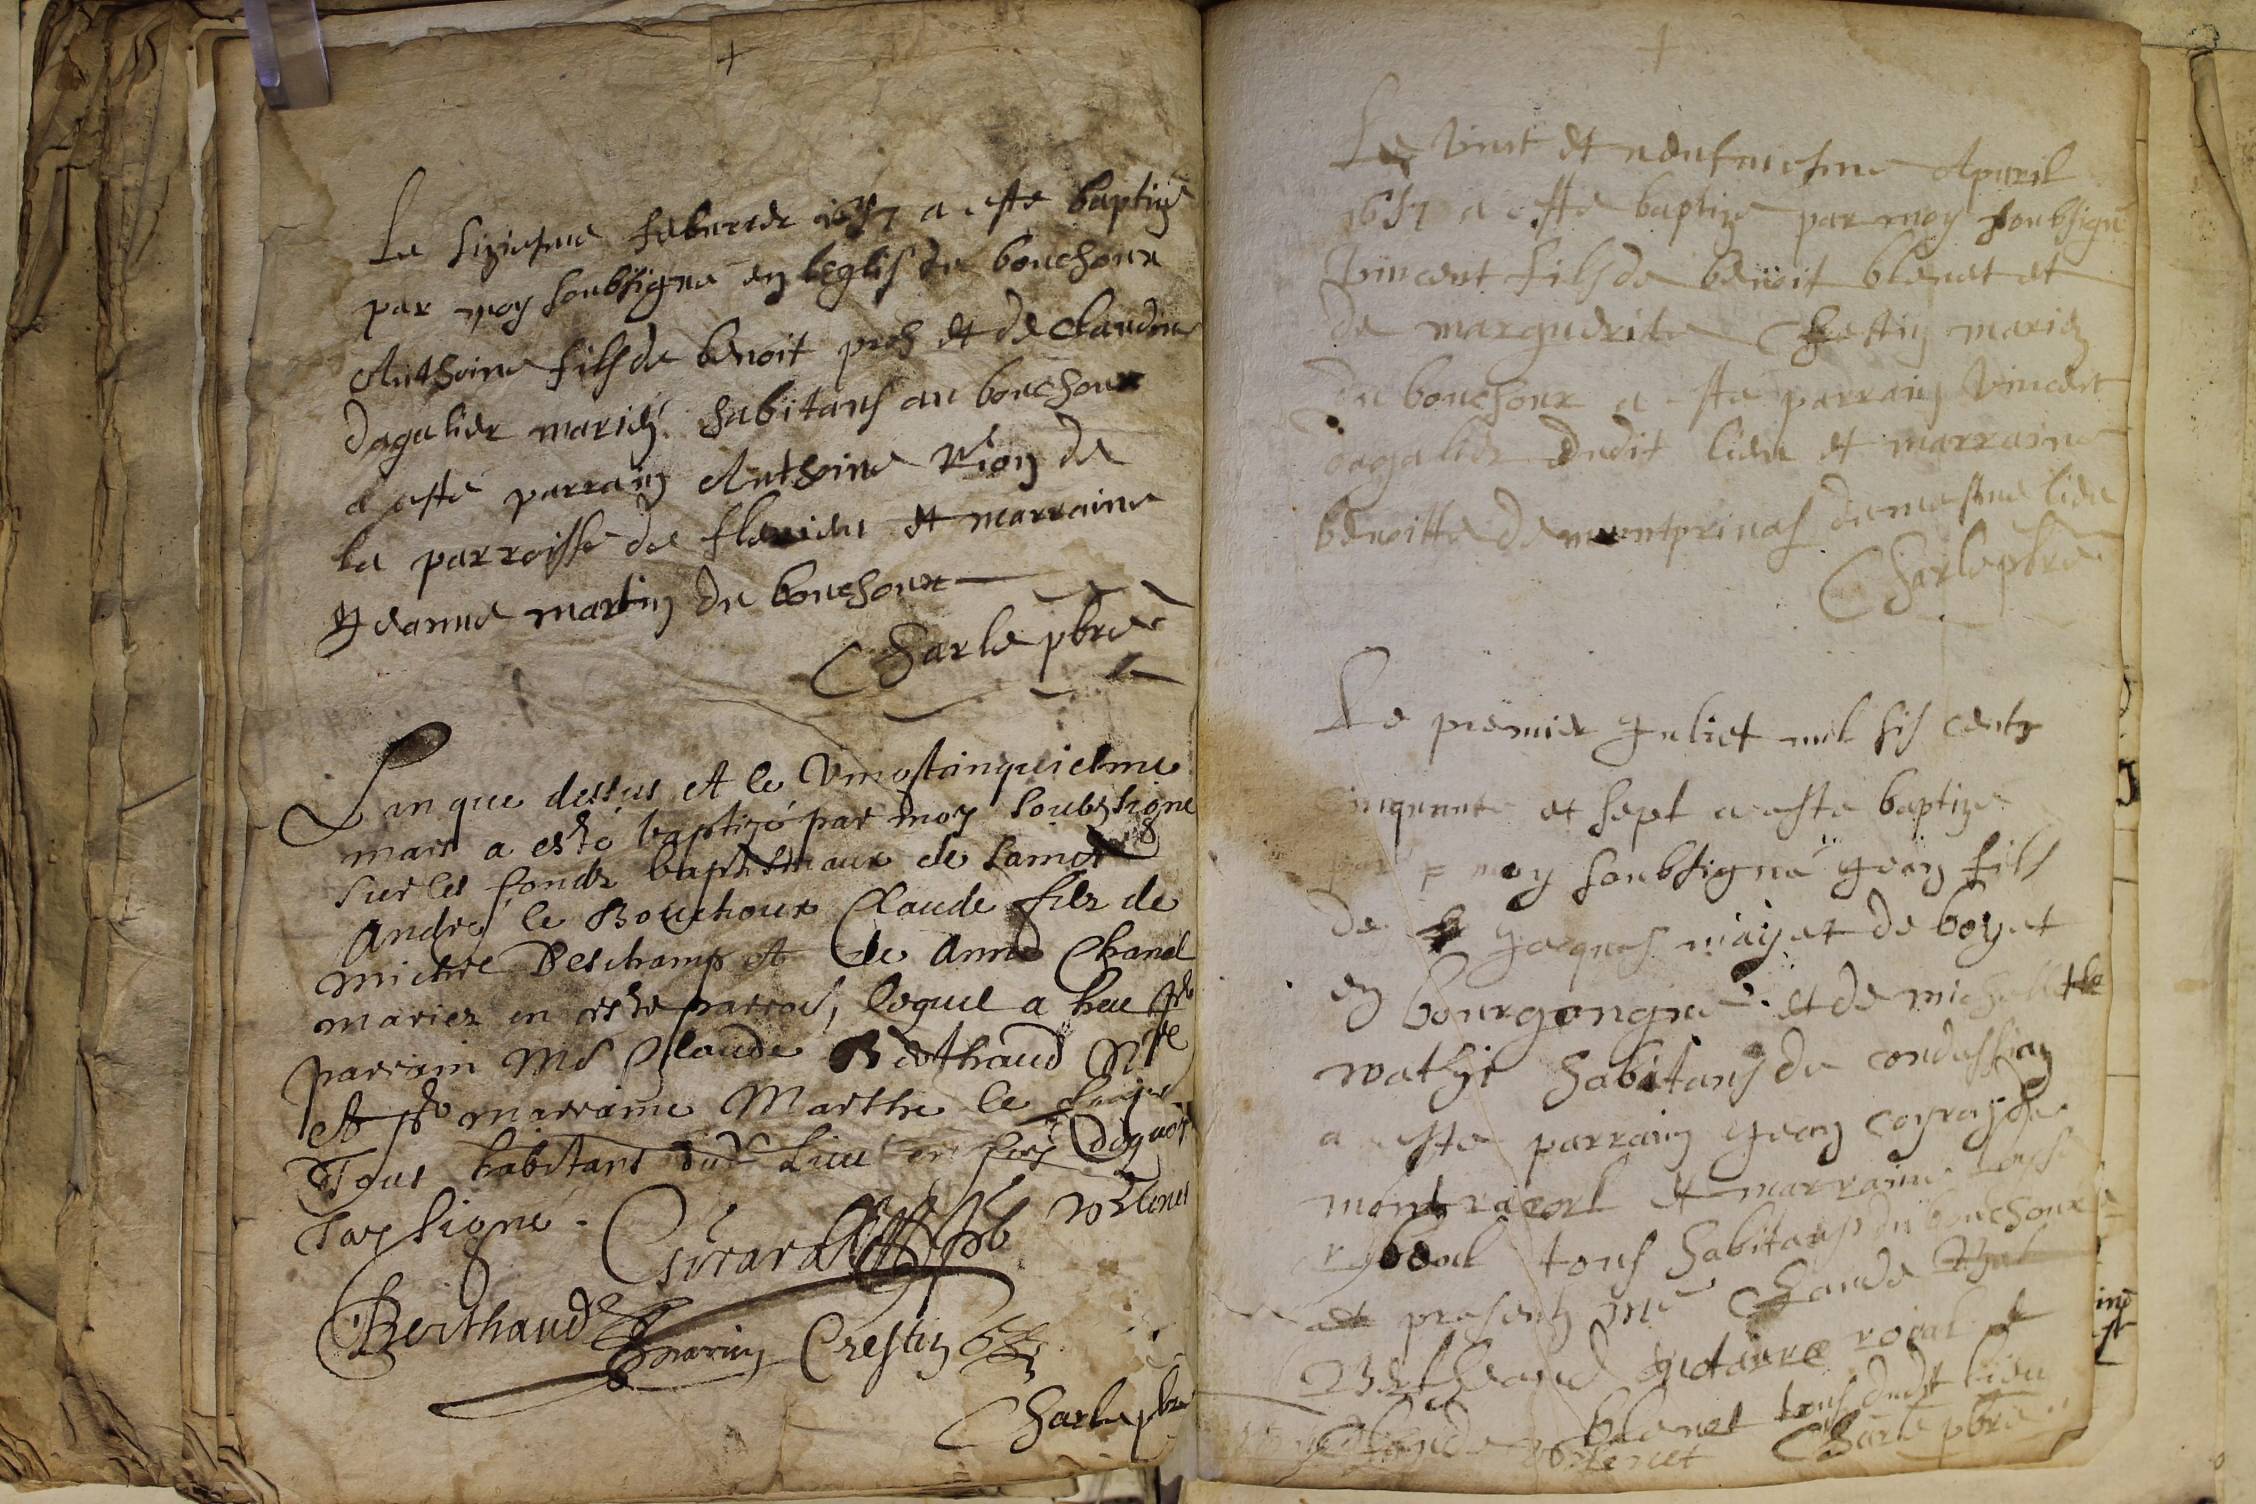 Le siziesme feburier 1657 a este baptizé
par moy soubsigné en leglis du bouchoux
Anthoine fils de benoit proh et de claudine
dagalier mariéz habitans au bouchoux
a esté parrain Anthoine
la parroisse de et marraine
Jeanne martin du bouchoux
Charle pbre
Lan que dessus et le vingtcinquiesme
mars a esté baptizé par moy soubzsigné
sur les fondz baptismaux de sainct
André le Bouchoux Claude filz de
michel Deschamps et de Anne Chanel
mariez en ceste parrois, lequel a heu pr
parrain Me Claude Berthaud Nre
et pr marraine Marthe le
Tous habitans dud lieu en foy dequoy
Jay signé.
Girard pb
Berthaud
marin Crestin
Charle pbre
Le vint et neufuiesme Apuril
1657 a este baptize par moy soubsigné
vincent fils de benoit blenet et
de marguerite Chestin mariez
du bouchoux a este parrain vincent
dagalier dudit lieu et marraine
benoitte de montprinas du mesme lieu
Charle pbre
Le premier Juliet mil sis centz
cinquante et sept a este baptize
par moy soubsigné Jean fils
de Jacques mayet de boyet
en bourgongne et de michellette
habitans de condessiat
a este parrain Jean de
montracol et marraine
tous habitans du bouchoux
et presentz me Claude
Berthaud notaire royal et
Claude blenet tous dudit lieu
Charle pbre